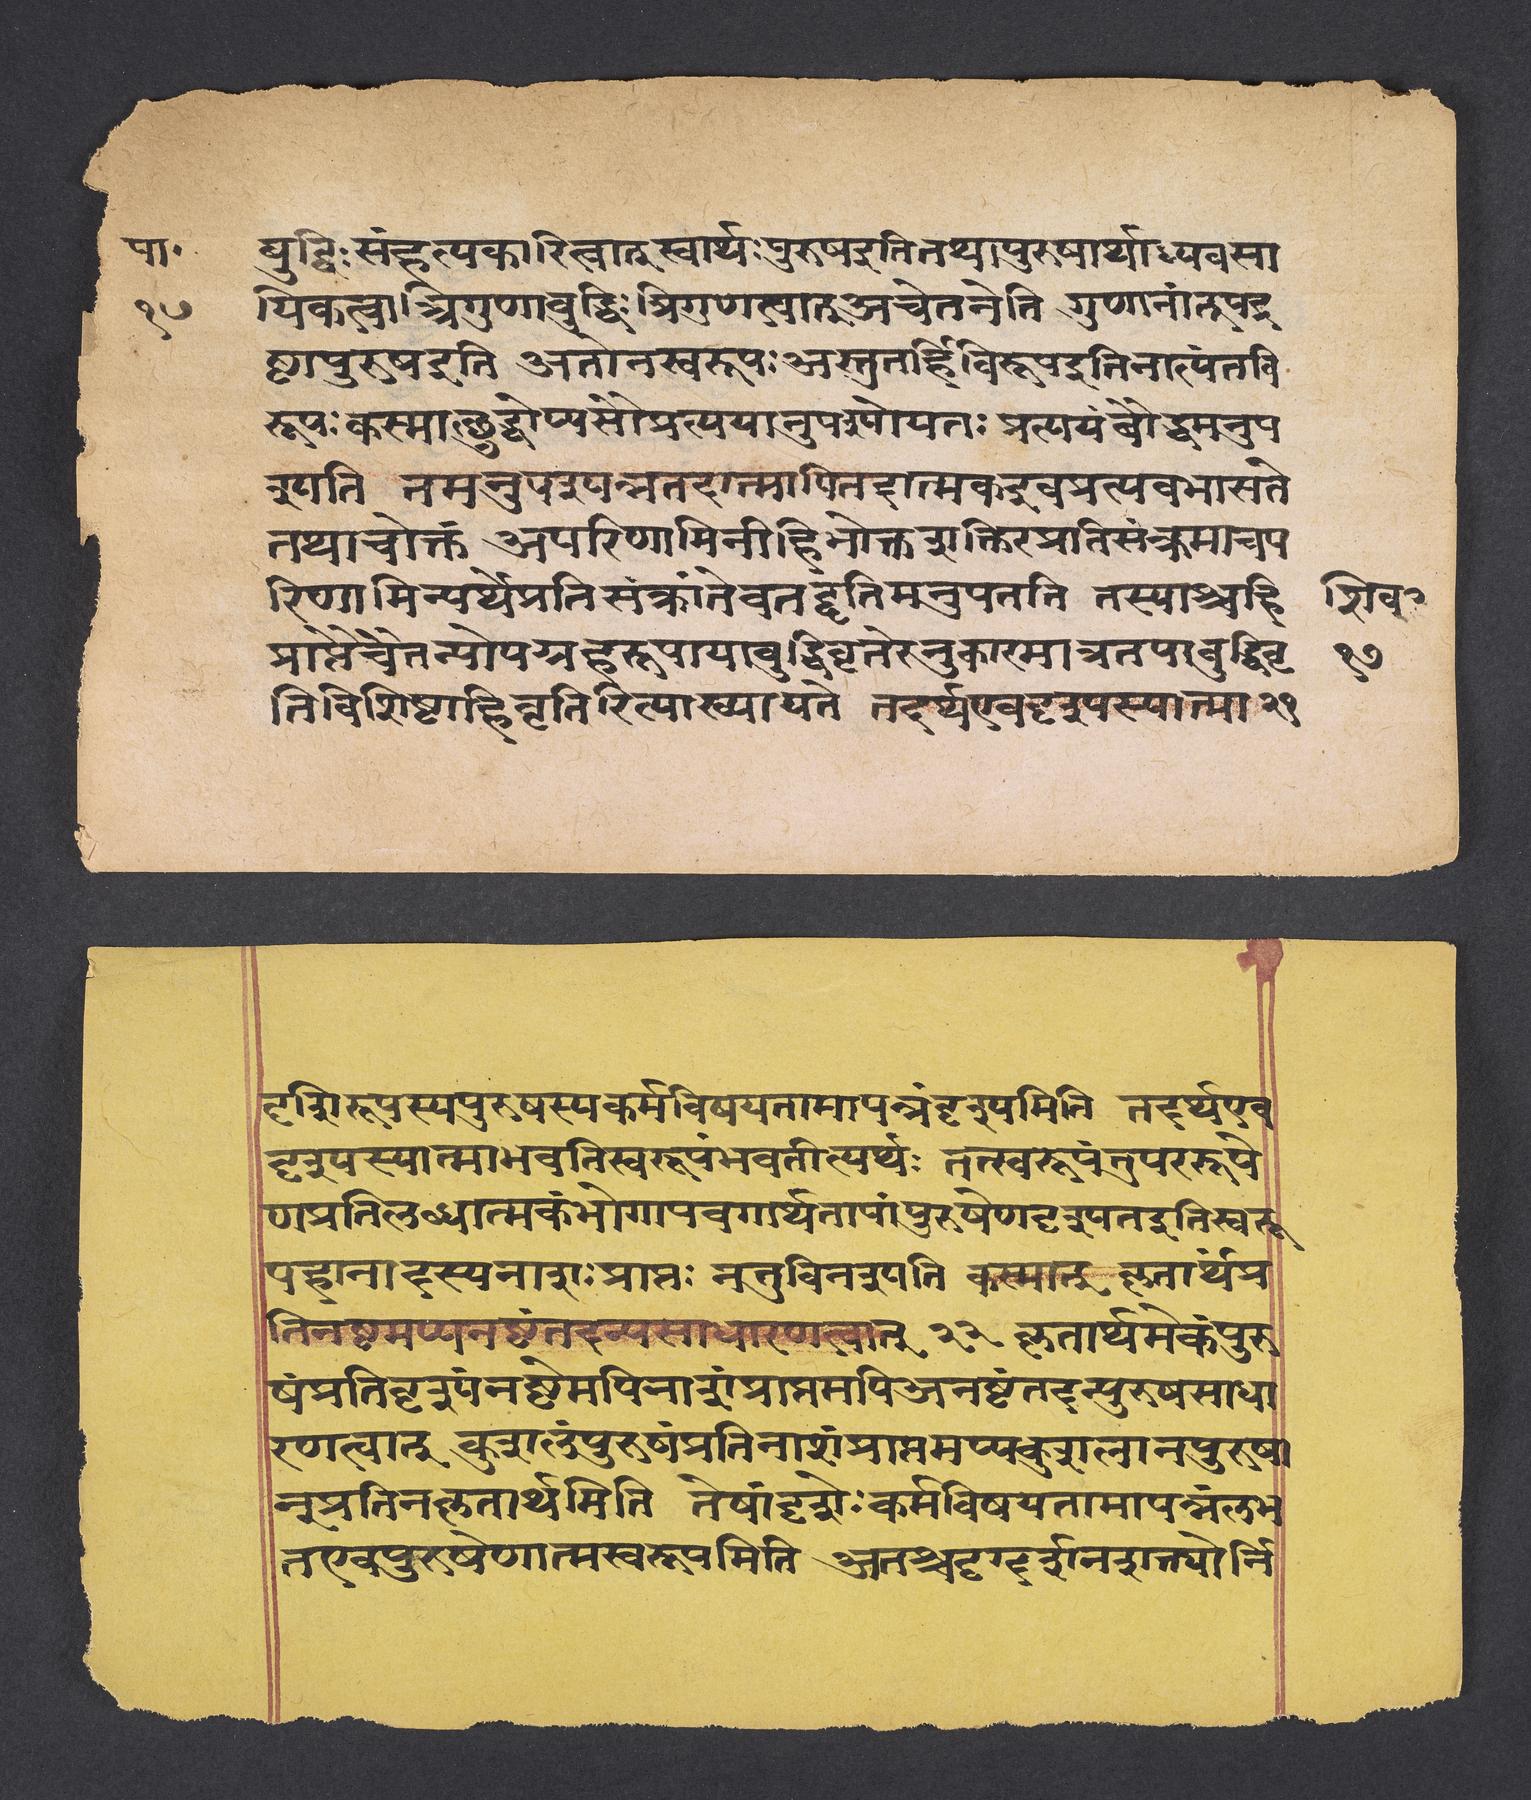 पा॰
१७
बुद्धिः संहत्यकारित्वात् स्वार्थः पुरुष इति तथा पुरुषार्थाध्यवसा
यिकत्वात्त्रिगुणा बुद्धिः त्रिगुणत्वात् अचेतनेति गुणानां तूपद्र
ष्टा पुरुष इति अतो न स्वरूपः अस्तु तर्हि विरूप इति नात्यंतवि
रूपः कस्मात् शुद्धोप्यसौ प्रत्ययानुपश्योयतः प्रत्ययं बौद्धमनुप
श्यति तमनुपश्यन्नतदात्मापि तदात्मक इव प्रत्यवभासते
तथा चोक्तं अपरिणामिनी हि भोक्तृशक्तिरप्रतिसंक्रमा च प
रिणामिन्यर्थे प्रतिसंक्रांतेव तद्वृत्तिमनुपतति तस्याश्च हि
प्राप्तचैतन्योपग्रहरूपाया बुद्धिवृत्तेरनुकारमात्रतया बुद्धिवृ
त्तिविशिष्टा हि वृत्तिरित्याख्यायते तदर्थ एव दृश्यस्यात्मा २१
शिव॰
१७
दृशिरूपस्य पुरुषस्य कर्मविषयतामापन्नं दृश्यमिति तदर्थ एव
दृश्यस्यात्मा भवति स्वरूपं भवतीत्यर्थः तत्स्वरूपं तु पररूपे
ण प्रतिलब्धात्मकं भोगापवगार्थतायां पुरुषेण दृश्यत इति स्वरू
पहानादस्य नाशः प्राप्तः न तु विनश्यति कस्मात् कृतार्थं प्र
ति नष्टमप्यनष्टं तदन्यसाधारणत्वात् २२ कृतार्थमेकं पुरु
षं प्रति दृश्यं नष्टमपि नाशं प्राप्तमपि अनष्टं तदन्यपुरुषसाधा
रणत्वात् कुशलं पुरुषं प्रति नाशं प्राप्तमप्यकुशलान् पुरुषा
न् प्रति न कृतार्थमिति तेषां दृशेः कर्मविषयतामापन्नं लभ
त एव पुरुषेणात्मस्वरूपमिति अतश्च दृग्दर्शनशक्त्योर्नि